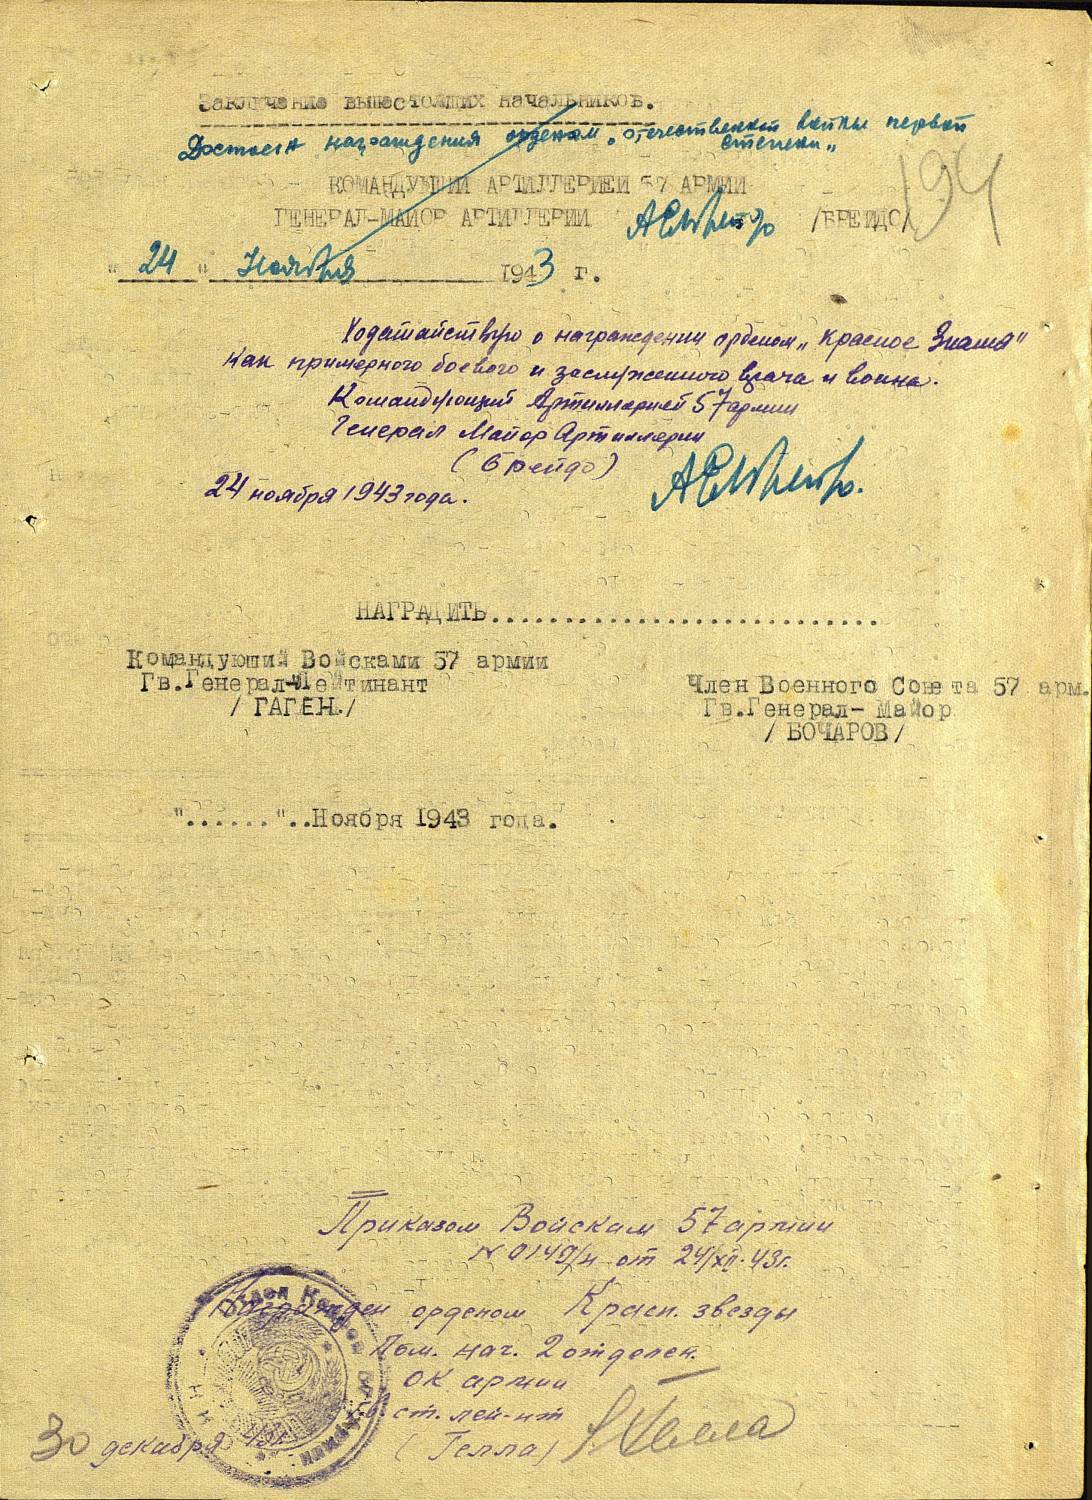 Заключение вышестоящих начальников.
Достоен награждения орденом „Отечественной войны первой
степени"
194
КОМАНДУЮЩИЙ АРТИЛЛЕРИЕЙ 57 АРМИИ
ГЕНЕРАЛ-МАЙОР АРТИЛЛЕРИИ /БРЕЙДО/
"24" Ноября 1943 г.
Ходатайствую о награждении орденом „Красное Знамя"
как примерного боевого и заслуженного врача и воина.
Командующий Артиллерией 57 армии
Генерал Майор Артиллерии
(Брейдо)
24 ноября 1943 года.
НАГРАДИТЬ...........................
Командующий Войсками 57 армии
Гв.Генерал-Лейтинант
/ ГАГЕН./
Член Военного Совета 57 арм.
Гв.Генерал- Майор
/ БОЧАРОВ /
"......"..Ноября 1943 года.
Приказом Войскам 57 армии
№ 0149/н от 24/XII-43г.
Награжден орденом Красн. звезды
Пом. нач. 2 отделен.
ОК армии
ст. лей-нт
(Гелла)
30 декабря 43г.
Отдел Кадров